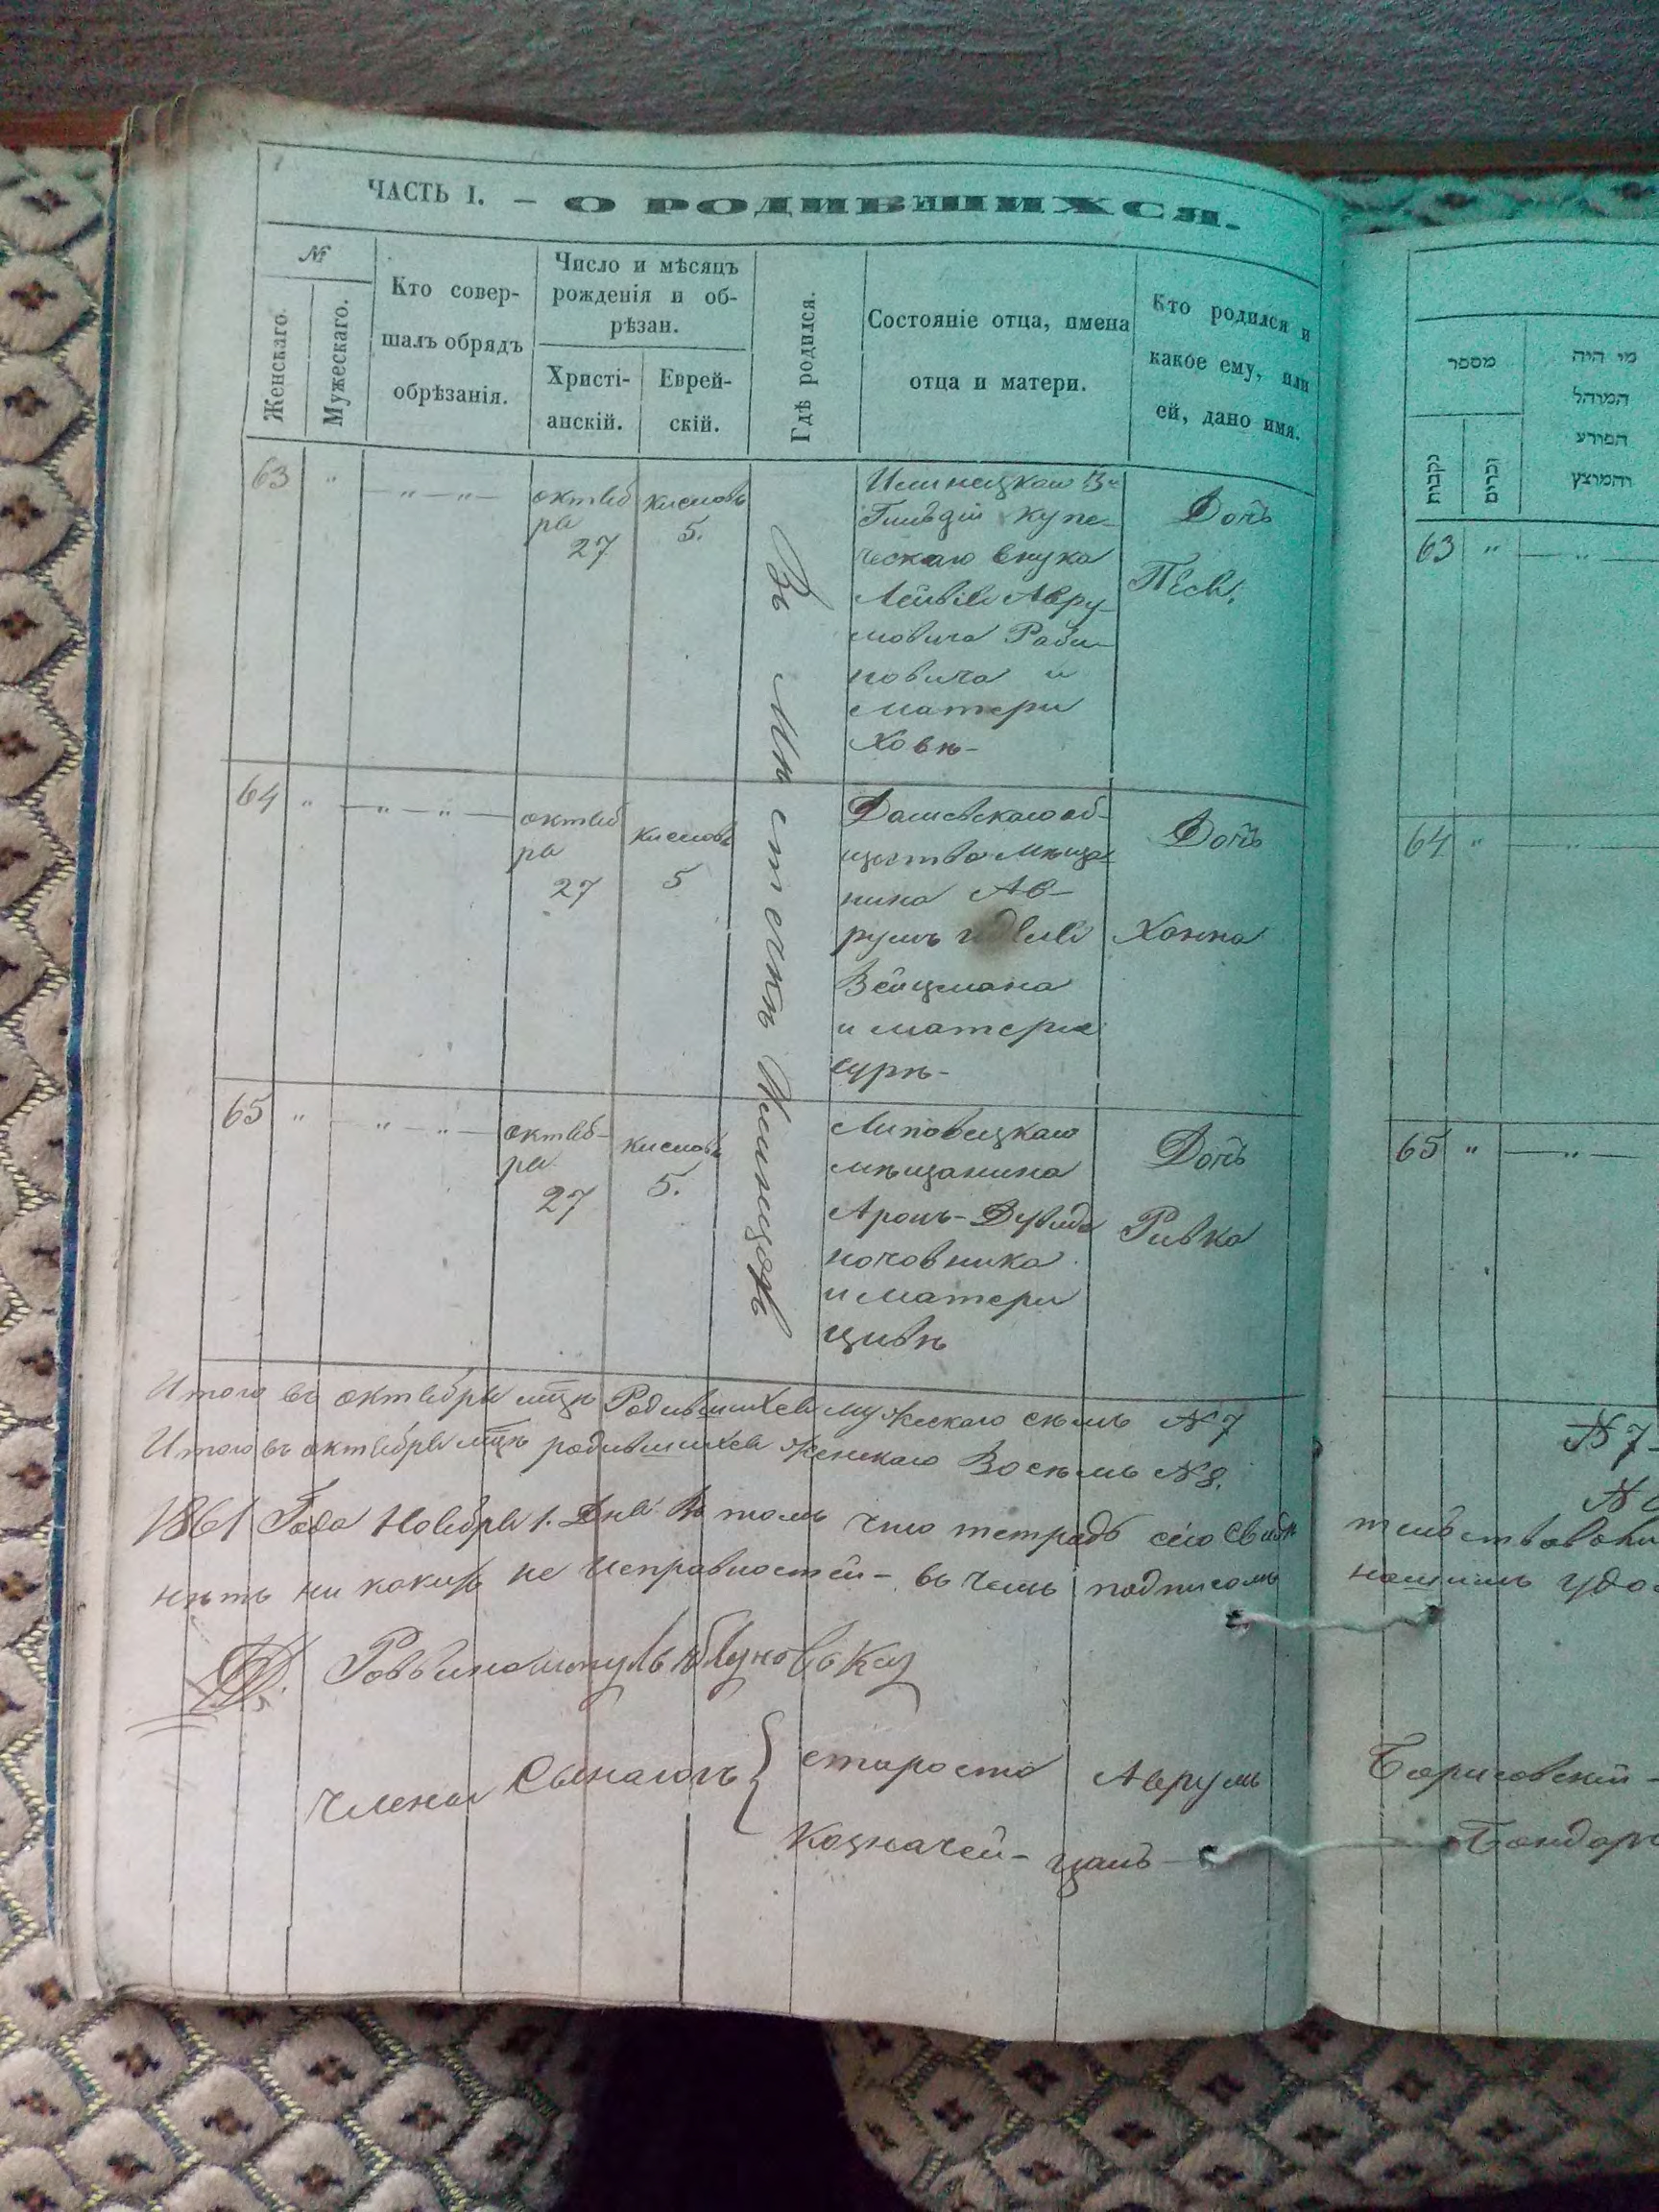 ЧАСТЬ I. – О РОДИВШИХСЯ.
№
Женскаго.
Мужескаго.
Кто совер-
шалъ обрядъ
обрѣзанія.
Число и мѣсяцъ
рожденія и об-
рѣзан.
Христі-
анскій.
Еврей-
скій.
Гдѣ родился.
Состояніе отца, имена
отца и матери.
Кто родился и
какое ему, или
ей, дано имя.
63 " — " — " —
октяб
ря
27
кисловъ
5.
Въ Мѣстечкѣ Илинцахъ
Илинецкаго 3й
Гильдіи купе-
ческаго внука
Лейвы Авру-
мовича Раби-
новича и
матери
Ховѣ-
Дочь
Песя,
64 " — " — " —
октяб
ря
27
кисловъ
5
Дашевскаго об-
щества мѣща
нина Ав-
румъ
Вейцмана
и матери
сурѣ-
Дочь
Ханна
65 " — " — " —
октяб-
ря
27
кисловъ
5.
Липовецкаго
мѣщанина
Аронъ-Дувида
ночовника
и матери
цивѣ
Дочь
Ривка
Итого въ октябрѣ мцѣ Родившихся мужескаго семь №7
Итого въ октябрѣ мцѣ родившихся женскаго Восемь №8.
1861 Года Ноября 1. Дня Въ томъ что тетрадь сію Свидѣ
нѣтъ ни какихъ не исправностей- въ чемъ подписомъ
члены Сынагогъ
староста Аврумъ
Казначей-
מספר
נקבות
זכרים
מי היה
המוהל
הפורע
והמוצץ
63 " — "
64 " — " —
65 " — " —
№7-
тельствовали
нашимъ удо
Борисовскій-
Бондарь